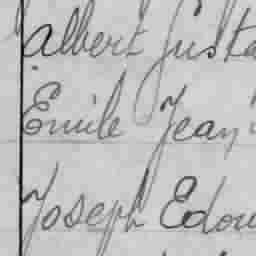 Albert Gusta
Emile Jean
Joseph Edou